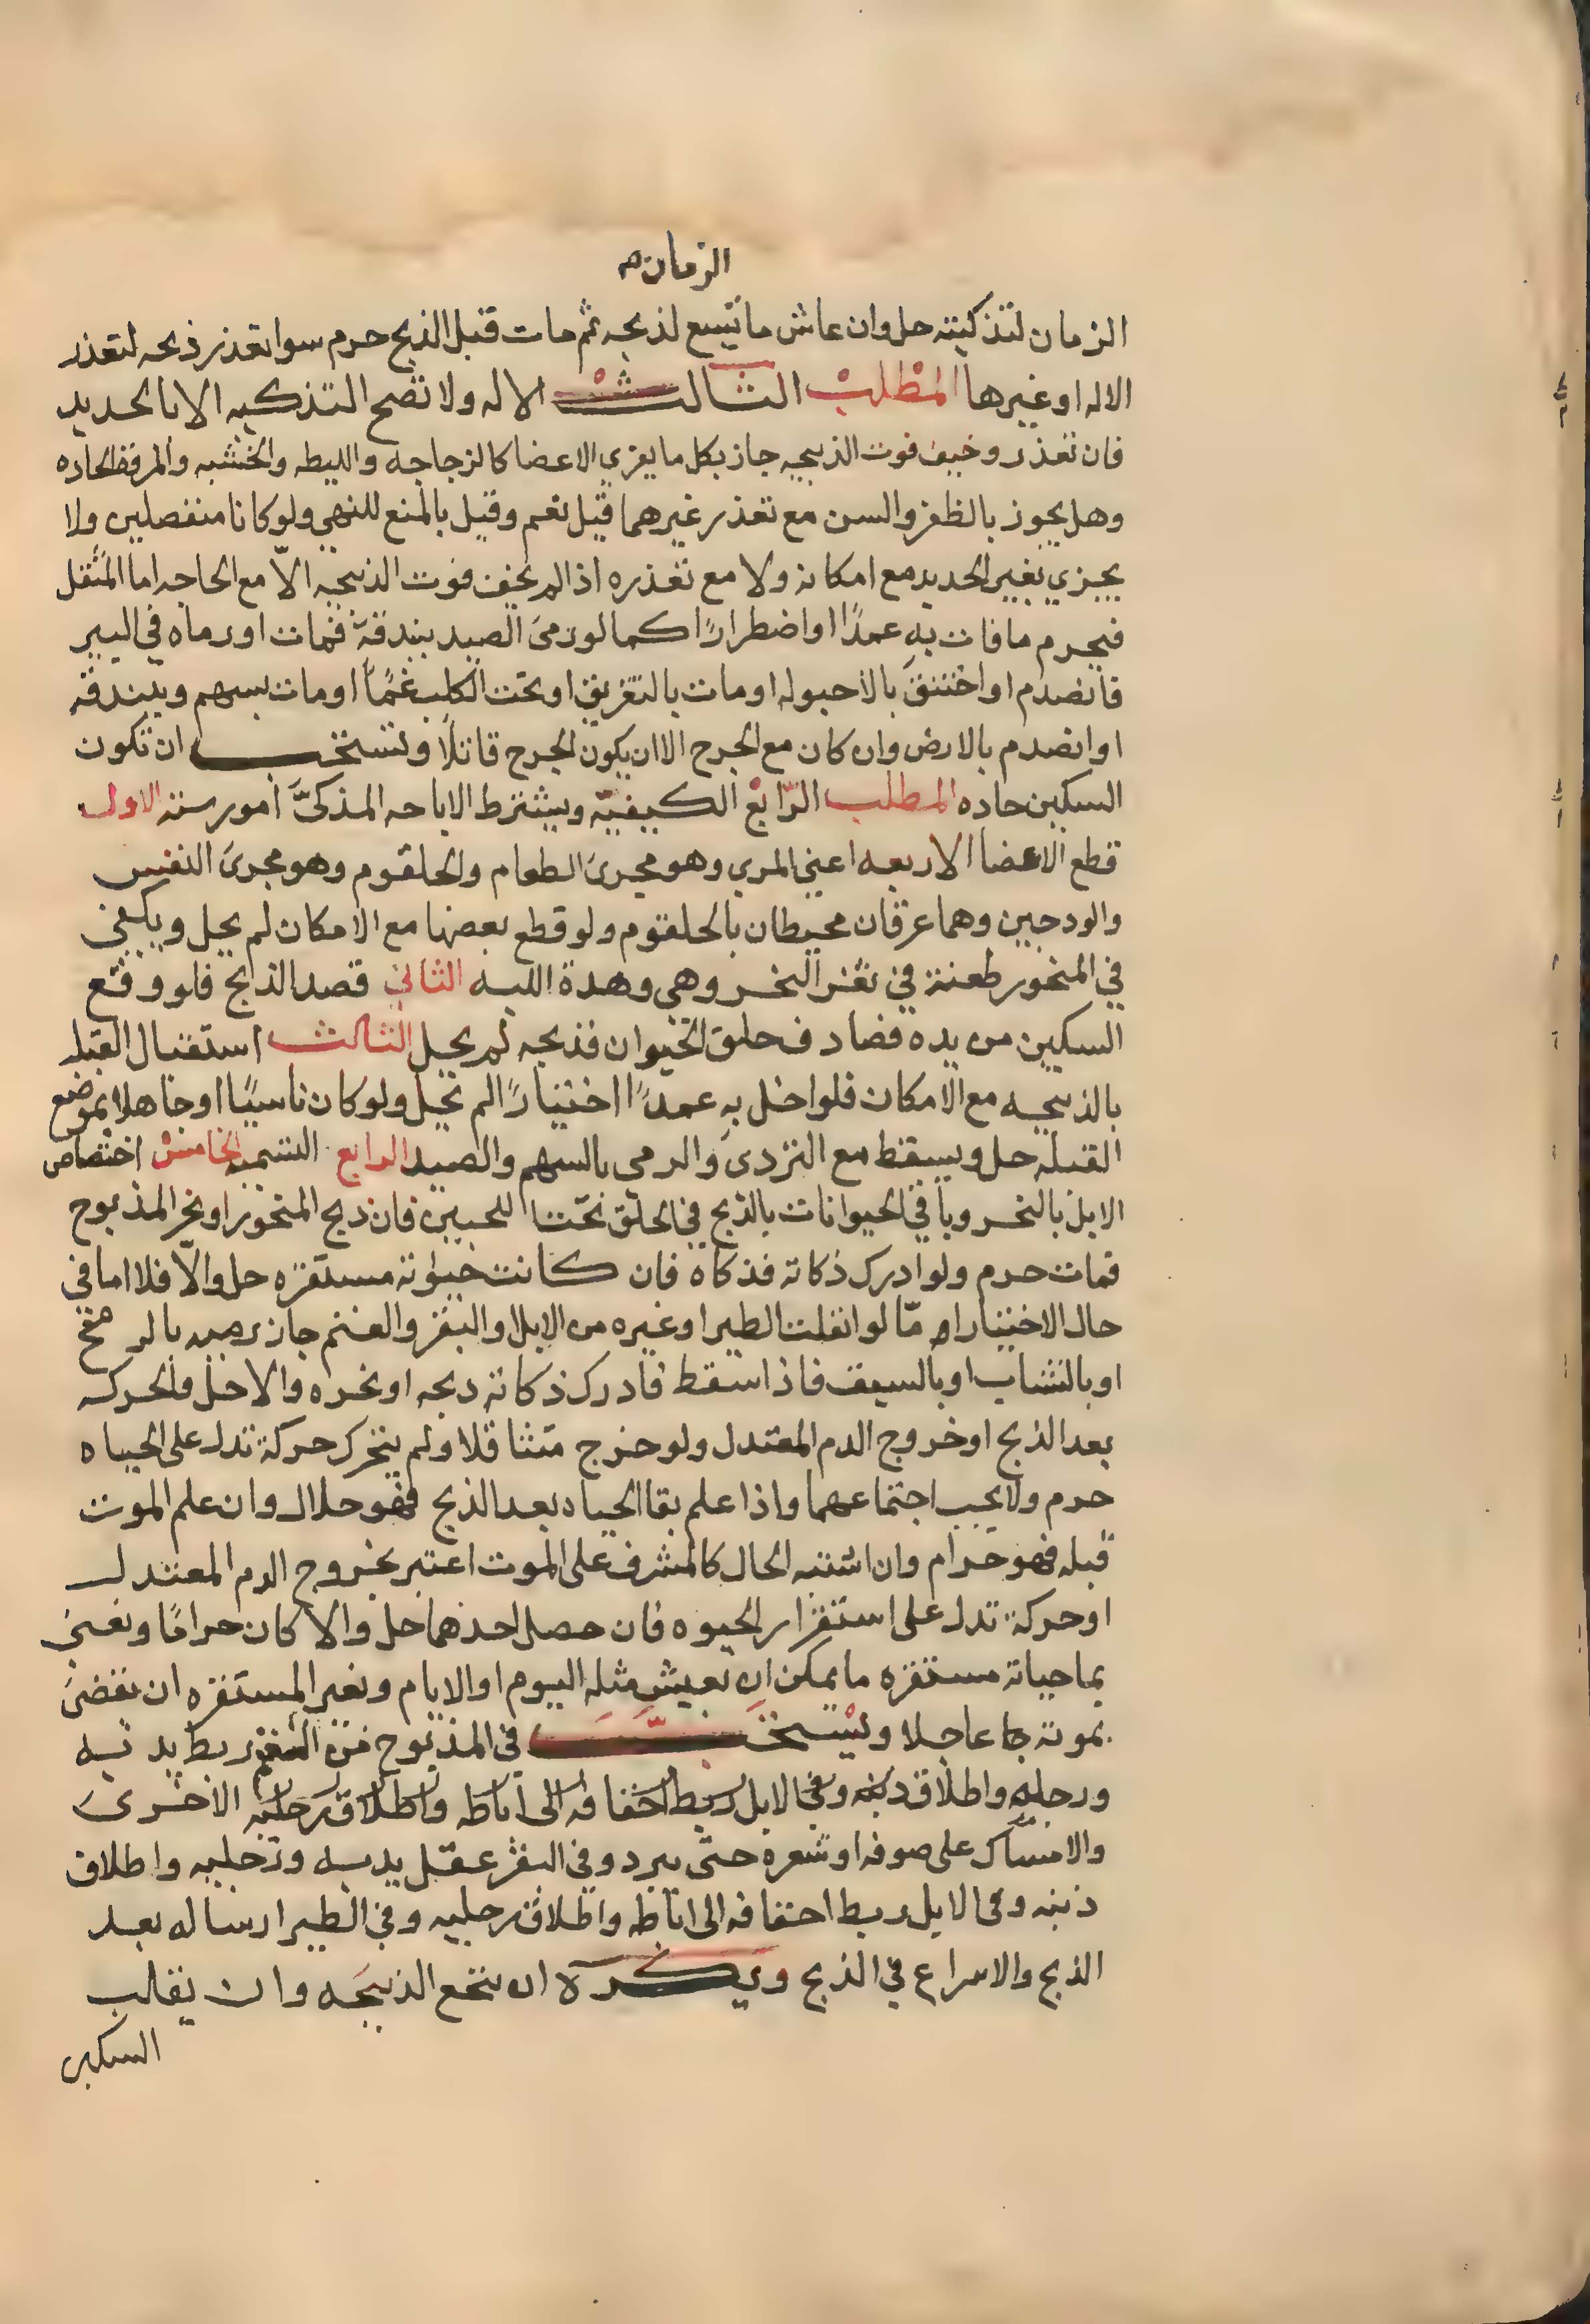 الزمان
الزمان لتذكيته حل وان عاش ما يتسع لذبحه ثم مات قبل الذبح حرم سوا تعذر ذبحه لتعذر
الاله او غيرها المطلب الثالث الاله ولا تصح التذكيه الا بالحديد
فان تعذر وخيف فوت الذبيحه جاز بكل ما يفري الاعضا كالزجاجه والليطه والخشبه والمروه الحاده
وهل يجوز بالظفر والسن مع تعذر غيرهما قيل نعم وقيل بالمنع للنهي ولو كانا منفصلين ولا
يجزي بغير الحديد مع امكانه ولا مع تعذره اذا لم يخف فوت الذبيحه الّا مع الحاجه اما المثقل
فيحرم ما فات به عمدًا او اضطرارًا كما لو رمى الصيد ببندقة فمات او رماه في البير
فانصدم او اختنق بالاحبوله او مات بالتغريق او تحت الكلب غمًا او مات بسهم وببندقه
او انصدم بالارض وان كان مع الجرح الا ان يكون الجرح قاتلًا وتستحب ان تكون
السكين حاده المطلب الرّابع الكيفيّه ويشترط الاباحه المذكىّ امور سته الاول
قطع الاعضا الاربعه اعني المري وهو مجرى الطعام والحلقوم وهو مجرى النفس
والودجين وهما عرقان محيطان بالحلقوم ولو قطع بعضها مع الامكان لم يحل ويكفي
في المنحور طعنة في ثغر النحر وهي وهدة اللبه الثاني قصد الذبح فلو وقع
السكين من يده فصادف حلق الحيوان فذبحه لم يحل الثالث استقبال القبله
بالذبيحه مع الامكان فلو اخل به عمدًا اختيارًا لم تحل ولو كان ناسيًا او جاهلا بموضع
القبله حل ويسقط مع التردى والرمي بالسهم والصيد الرابع التسميه الخامس اختصاص
الابل بالنحر وباقي الحيوانات بالذبح في الحلق تحت اللحيين فان ذبح المنحور او نحر المذبوح
فمات حرم ولو ادرك ذكاته فذكاه فان كانت حيوته مستقره حل والّا فلا اما في
حال الاختيار امّا لو انفلت الطير او غيره من الابل او البقر والغنم جاز رميه بالرمح
او بالنشاب او بالسيف فاذا سقط فادرك ذكاته ذبحه او نحره والا حل والحركه
بعد الذبح او خروج الدم المعتدل ولو خرج متثاقلا ولم يتحرك حركة تدل على الحياه
حرم ولا يجب اجتماعهما واذا علم بقا الحياه بعد الذبح فهو حلال وان علم الموت
قبله فهو حرام وان اشتبه الحال كالمشرف على الموت اعتبر بخروج الدم المعتدل
او حركة تدل على استقرار الحيوه فان حصل احدهما حل والا كان حرامًا ونعني
بما حياته مستقره ما يمكن ان يعيش مثله اليوم او الايام وبغير المستقره ان يقضى
بموته عاجلا ويستحب في المذبوح من الغنم ربط يديه
ورجليه واطلاق ذنبه وفي الابل ربط اخفافه الى اباطه واطلاق رجليه الاخرى
والامساك على صوفه او شعره حتى يبرد وفي البقر عقل يديه ورجليه واطلاق
ذنبه وفي الابل ربط اخفافه الى اباطه واطلاق رجليه وفي الطير ارساله بعد
الذبح والاسراع في الذبح ويكره ان ينخع الذبيحه وان يقلب
السكين